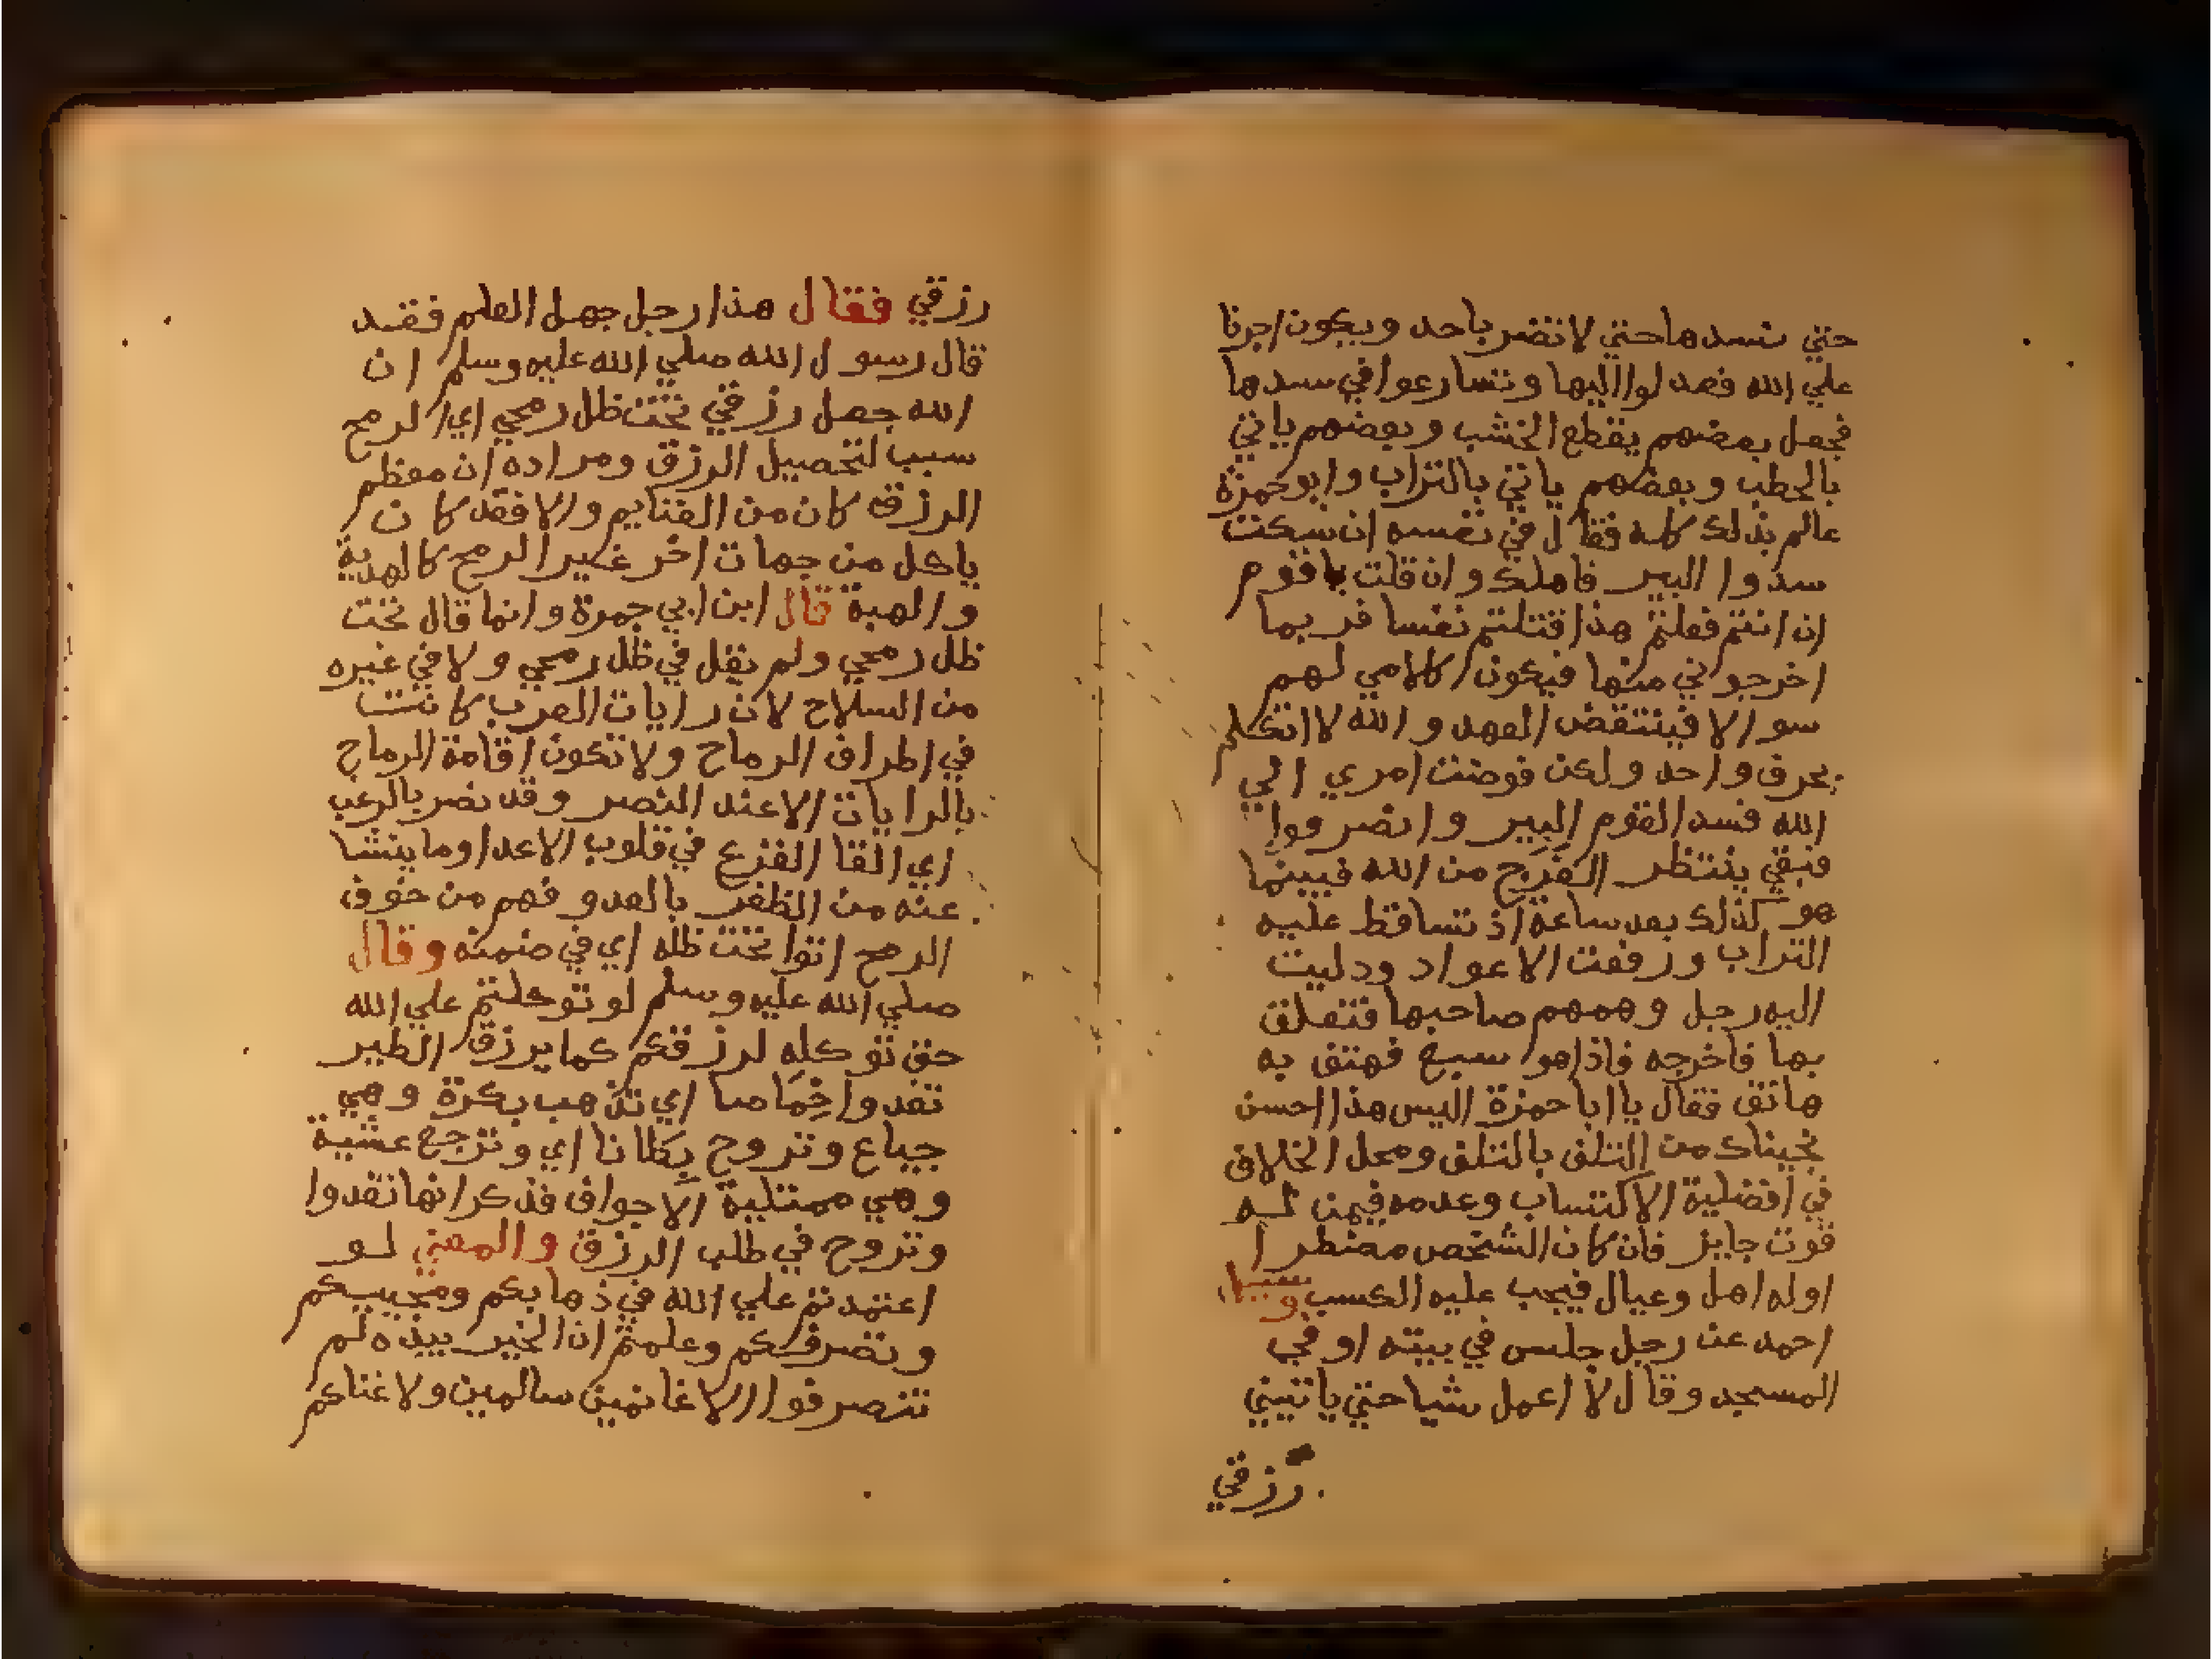 حتي نسدها حتي لا تضر باحد ويكون اجرنا
علي الله فعدلوا اليها وتسارعوا في سدها
فجعل بعضهم يقطع الخشب وبعضهم ياتي
بالحطب وبعضهم ياتي بالتراب وابو حمزة
عالم بذلك كله فقال في نفسه ان سكتت
سدوا البير فاهلك وان قلت يا قوم
ان انتم فعلتم هذا قتلتم نفسا فربما
اخرجوني منها فيكون كلامي لهم
سوالا فينتقض العهد والله لا اتكلم
بحرف واحد ولكن فوضت امري الي
الله فسد القوم البير وانصرفوا
فبقي ينتظر الفَرَج من الله فبينما
هو كذلك بعد ساعة اذ تساقط عليه
التراب ورفعت الاعواد ودليت
اليه رجل وهمهم صاحبها فتعلق
بها فاخرجه فاذا هو سبع فهتف به
هاتف فقال يا ابا حمزة اليس هذا احسن
نجيناك من التلف بالتلف ومحل الخلاف
في افضلية الاكتساب وعدمه فيمن له
قوت جايز فان كان الشخص مضطرا
اوله اهل وعيال فيجب عليه الكسب وسيل
احمد عن رجل جلس في بيته او في
المسجد وقال لا اعمل شيا حتي ياتيني
رزقي
رزقي فقال هذا رجل جهل العلم فقد
قال رسول الله صلي الله عليه وسلم ان
الله جعل رزقي تحت ظل رمحي اي الرمح
سبب لتحصيل الرزق ومراده ان معظم
الرزق كان من الغنايم والا فقد كان
ياكل من جهات اخر غير الرمح كالهدية
والهبة قال ابن ابي جمرة وانما قال تحت
ظل رمحي ولم يقل في ظل رمحي ولا في غيره
من السلاح لان رايات العرب كانت
في اطراف الرماح ولا تكون اقامة الرماح
بالرايات الا عند النصر وقد نصر بالرعب
اي القا الفزع في قلوب الاعدا وما ينشا
عنه من الظفر بالعدو فهم من خوف
الرمح اتوا تحت ظله اي في ضمنه وقال
صلي الله عليه وسلم لو توكلتم علي الله
حق توكله لرزقكم كما يرزق الطير
تغدوا خِمَاصا اي تذهب بكرة وهي
جياع وتروح بِطانا اي وترجع عشية
وهي ممتلية الاجواف فذكر انها تغدوا
وتروح في طلب الرزق والمعني لو
اعتمدتم علي الله في ذهابكم ومجييكم
وتصرفكم وعلمتم ان الخير بيده لم
تنصرفوا الا غانمين سالمين ولا غناكم